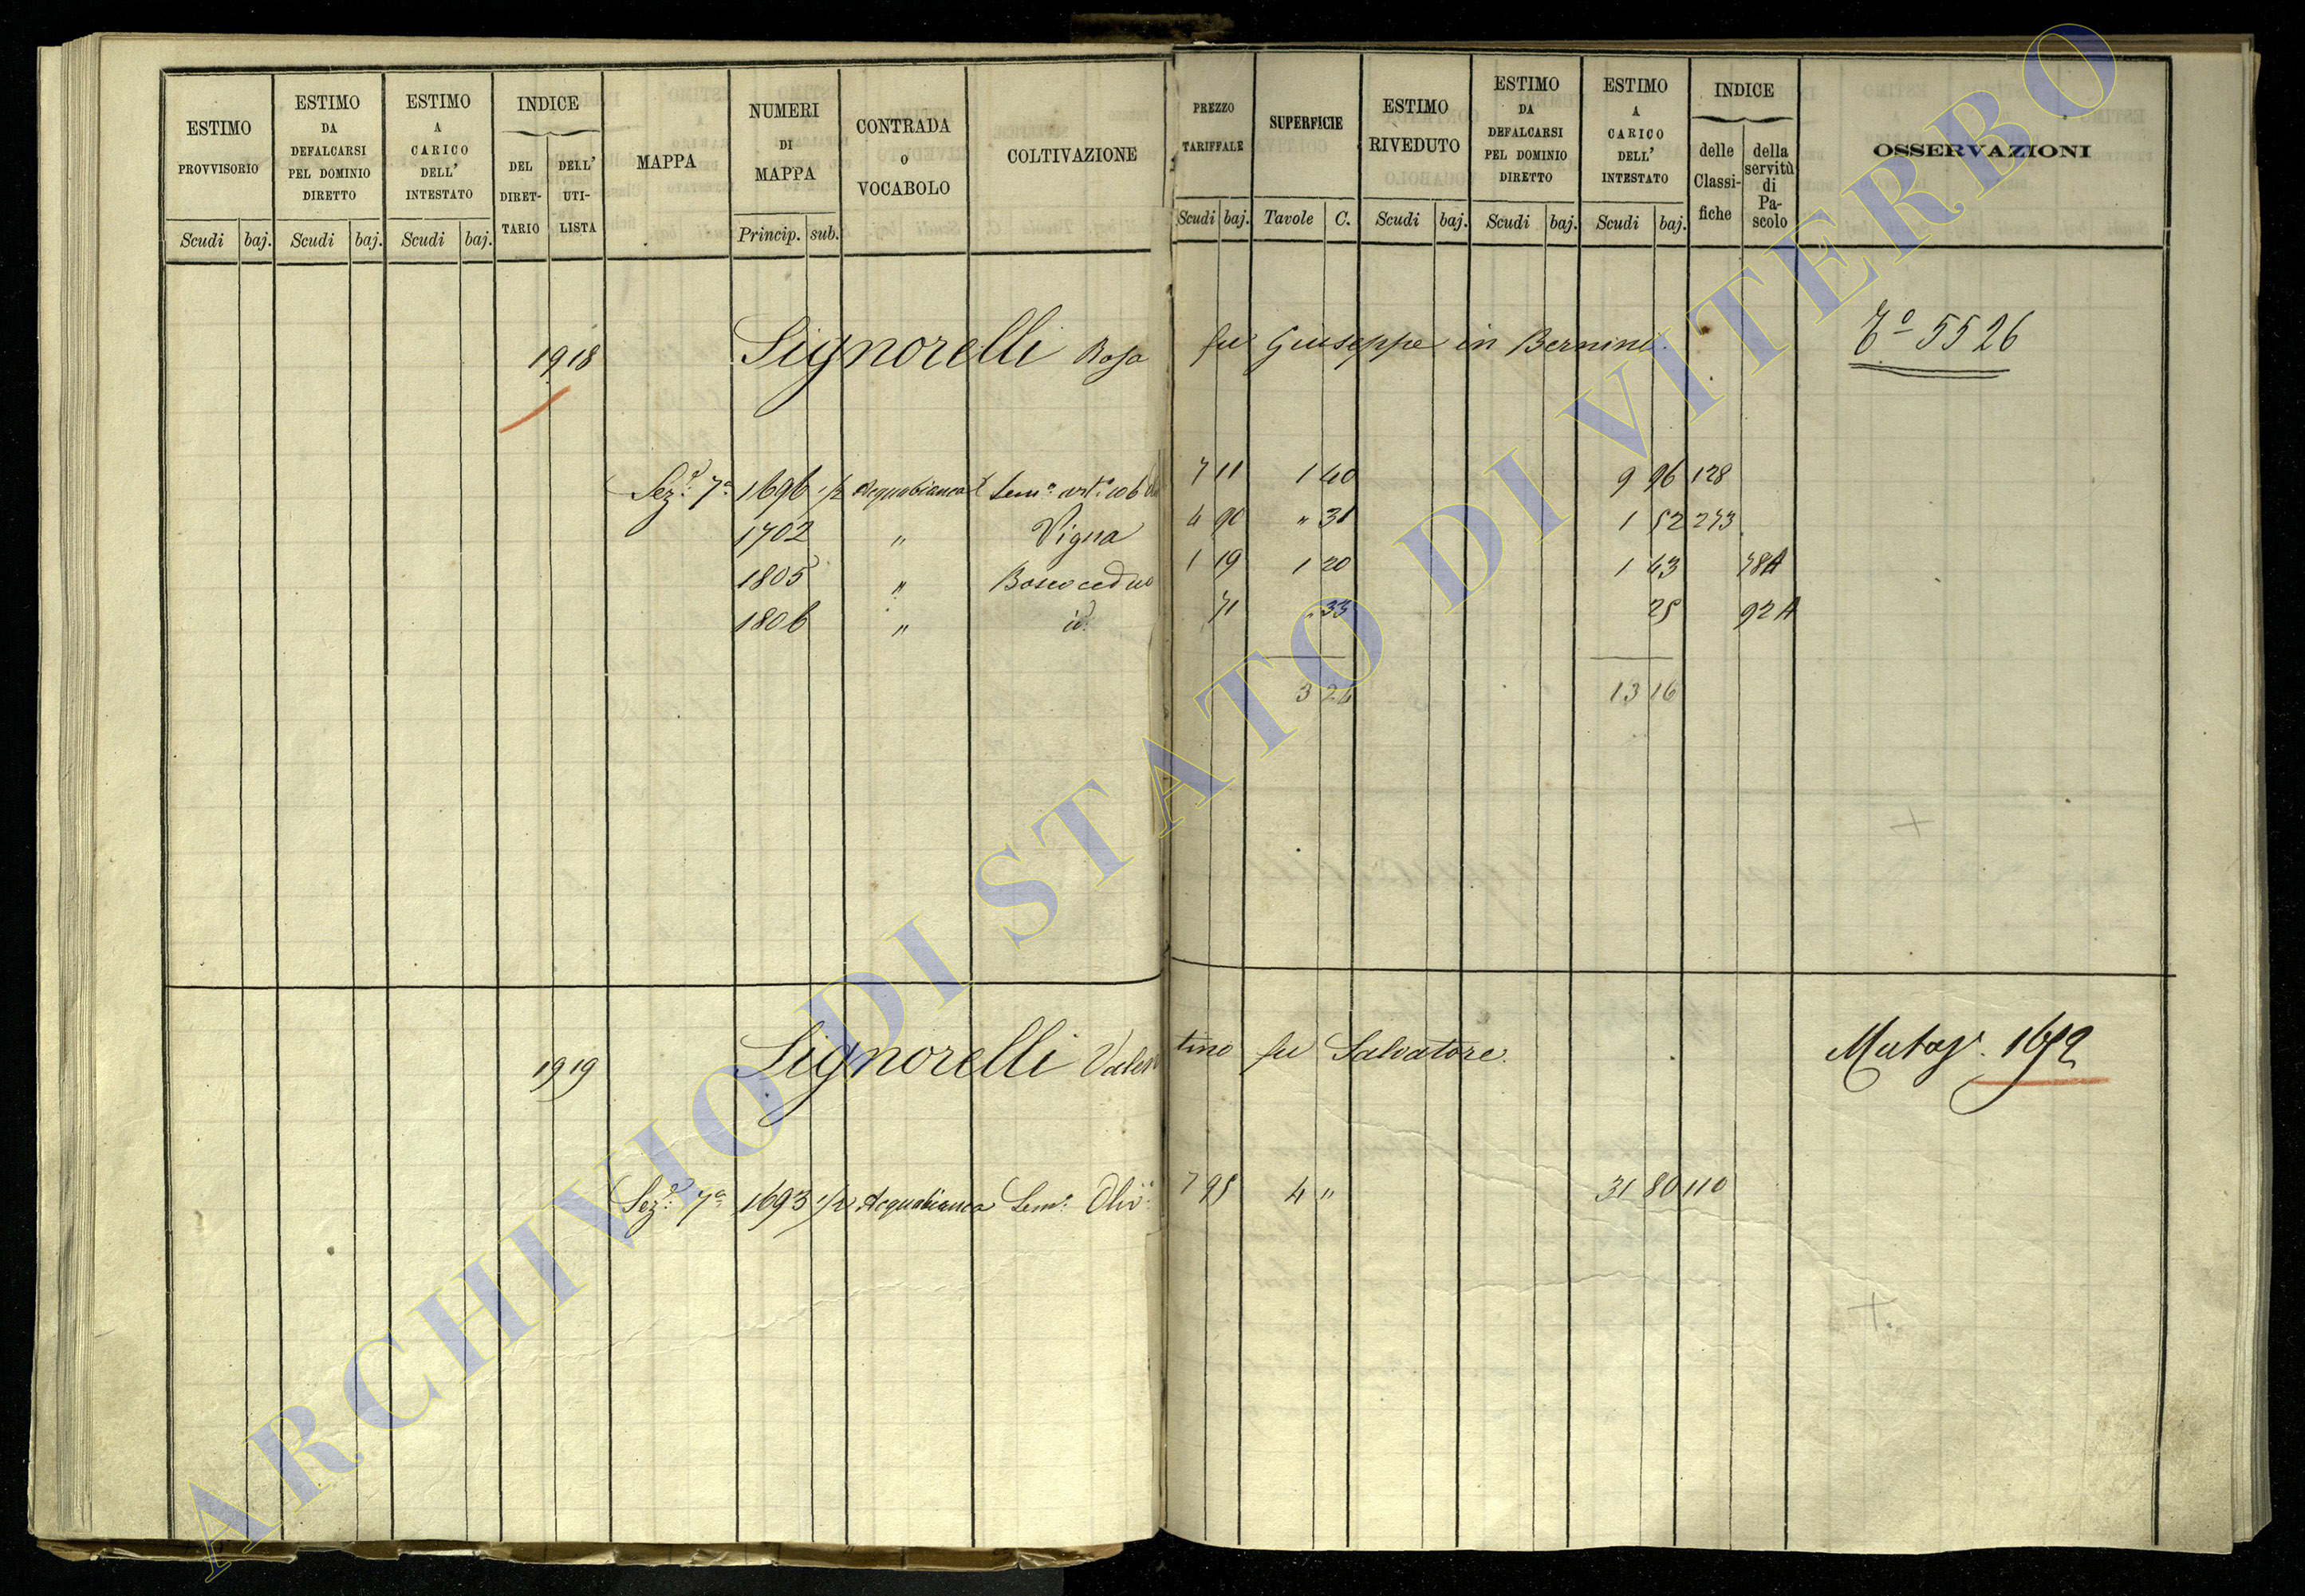 ESTIMO PROVVISORIO
Scudi baj.
ESTIMO DA DEFALCARSI PEL DOMINIO DIRETTO
Scudi baj.
ESTIMO A CARICO DELL' INTESTATO
Scudi baj.
INDICE
DEL DIRET- TARIO
DELL' UTI- LISTA
MAPPA
NUMERI DI MAPPA
Princip. sub.
CONTRADA o VOCABOLO
COLTIVAZIONE
PREZZO TARIFFALE
Scudi baj.
SUPERFICIE
Tavole C.
ESTIMO RIVEDUTO
Scudi baj.
ESTIMO DA DEFALCARSI PEL DOMINIO DIRETTO
Scudi baj.
ESTIMO A CARICO DELL' INTESTATO
Scudi baj.
INDICE
delle Classi- fiche
della servitù di Pa- scolo
OSSERVAZIONI
1918 Signorelli Rosa fu Giuseppe in Bernini. 5526
Sez.e 7a 1696 1/2 Acquabianca Sem.o 7 11 1 40 9 96 128
1702 " Vigna 4 90 " 31 1 52 273
1805 " Bosco ceduo 1 19 1 20 1 43 78A
1806 " id. 71 " 33 25 92A
3 24 13 16
1919 Signorelli Valentino fu Salvatore. 1692
Sez.e 7a 1693 1/2 Acquabianca Sem.o Oliv.o 7 95 4 " 31 80 110
ARCHIVIO DI STATO DI VITERBO